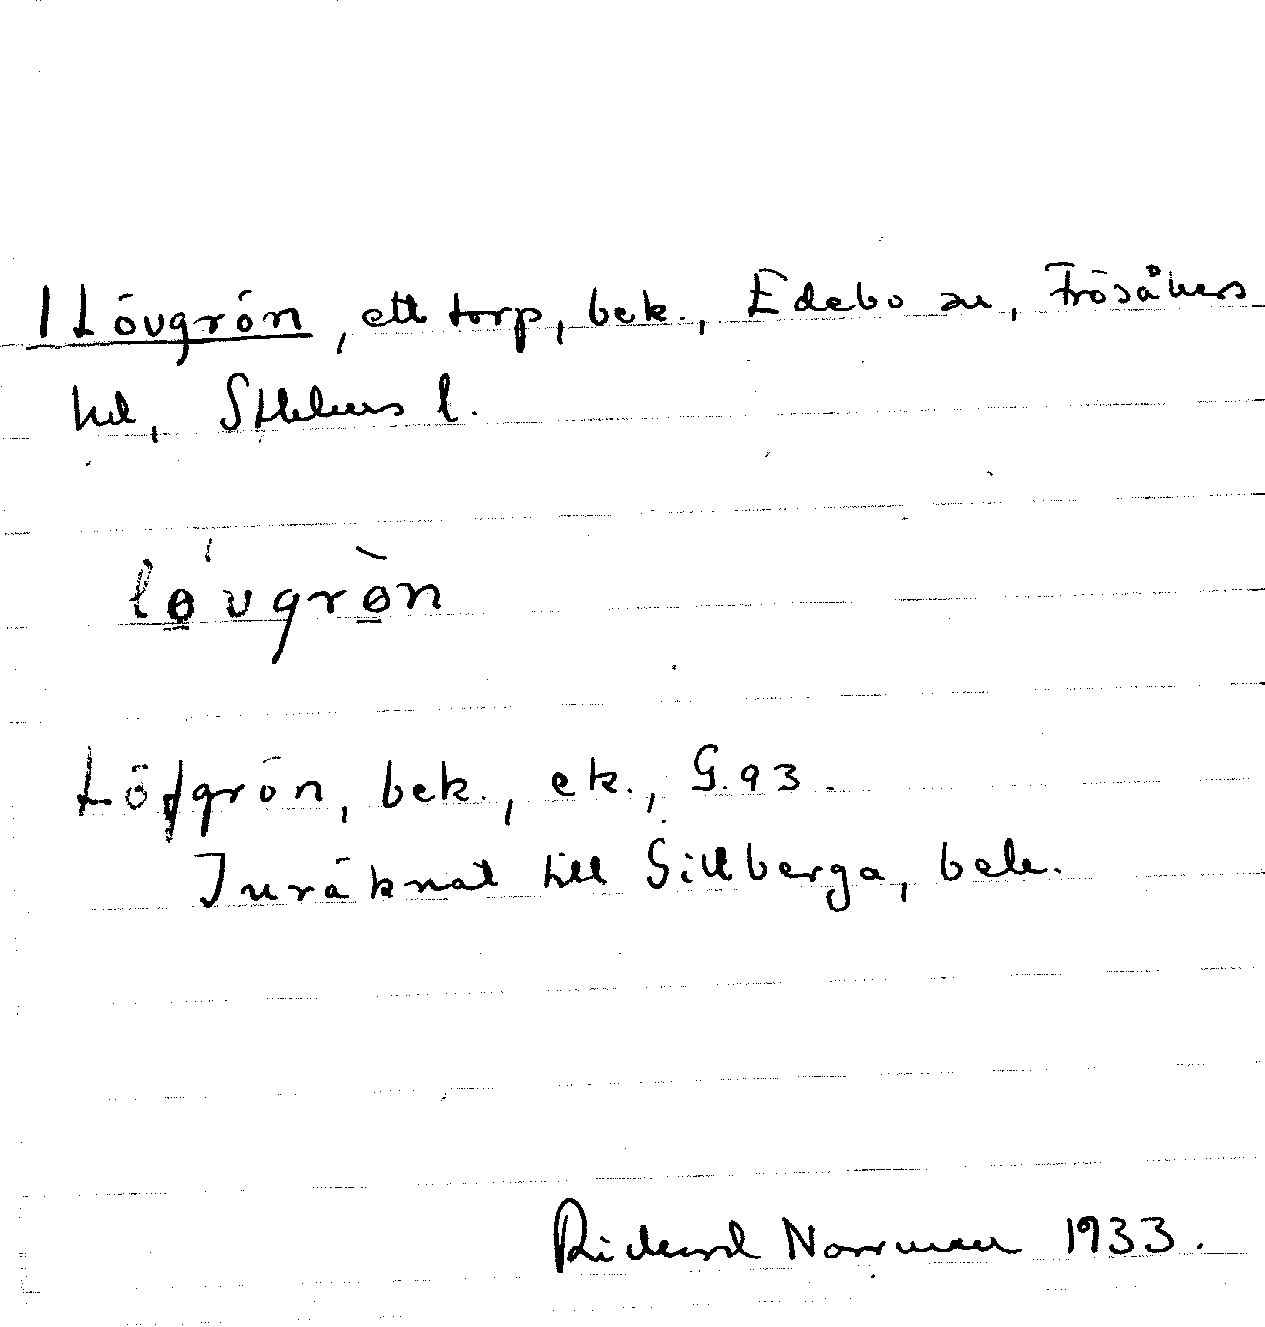 1 Lövgrön, ett torp, bek., Edebo sn, Frösåkers
hd, Sthlms l.
løvgrøn
Löfgrön, bek., ek., G.93.
Inräknat till Gillberga, bek.
Rickard Norrman 1933.